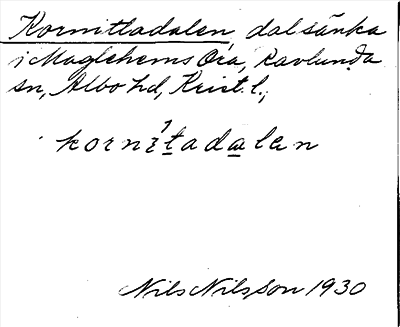 Kornittadalen, dalsänka
i Maglehems Ora, Ravlunda
sn, Albo hd, Krist. l.,
kornìtadalen
Nils Nilsson 1930